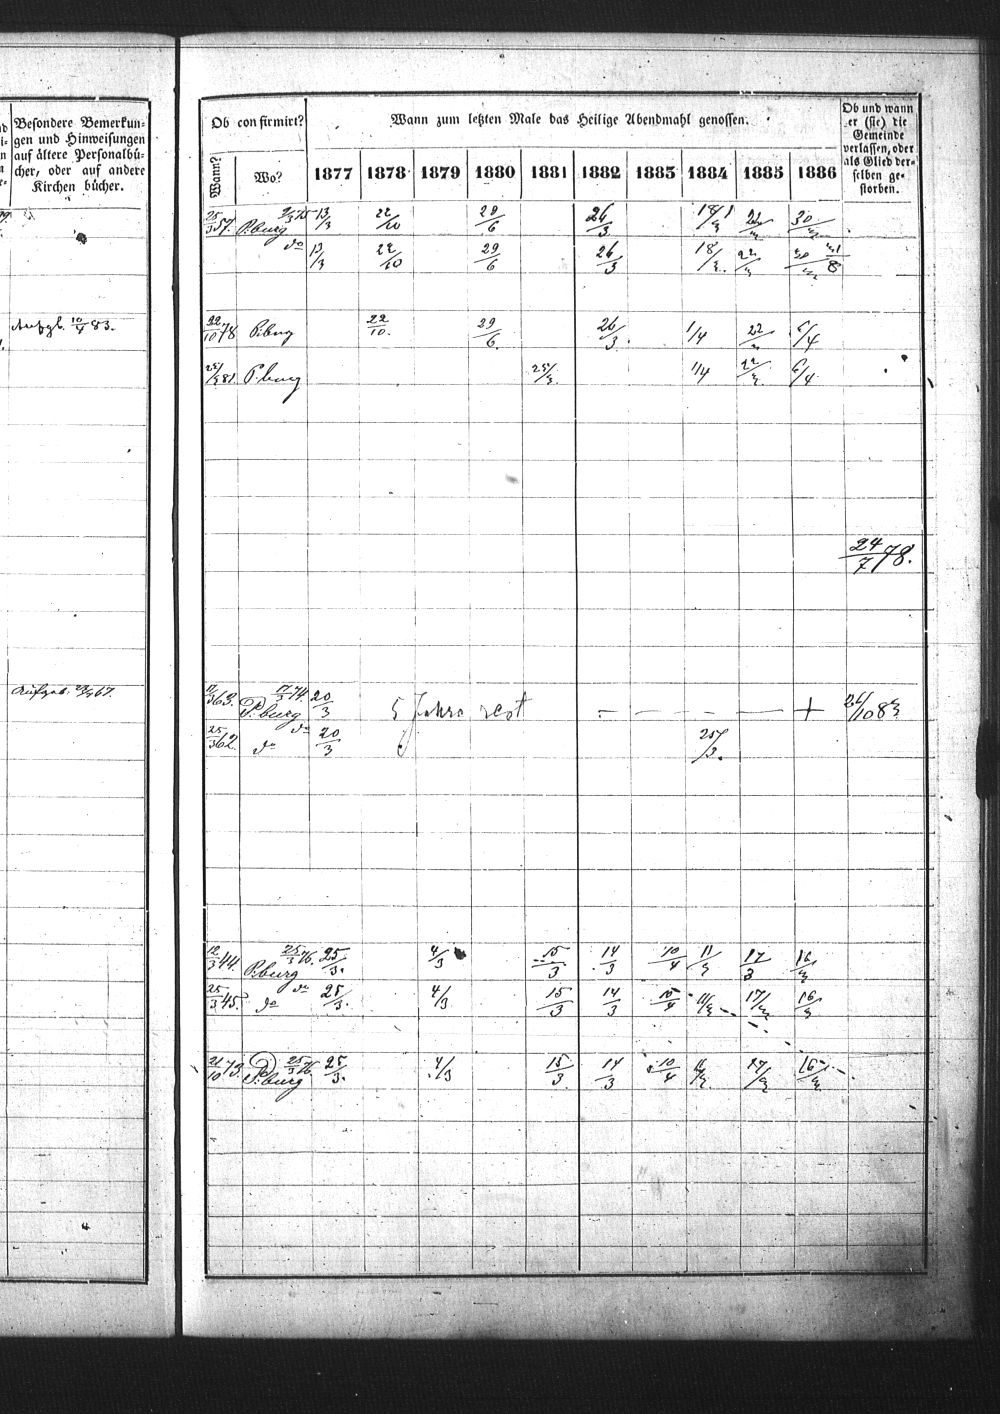 Besondere Bemerkun-
gen und Hinweisungen
auf ältere Personalbü-
cher, oder auf andere
Kirchen bücher.
Aufgb. 10/4 83.
Aufgeb. 67.
Ob confirmirt?
Wann?
Wo?
Wann zum letzten Male das Heilige Abendmahl genossen.
1877 1878 1879 1880 1881 1882 1883 1884 1885 1886
Ob und wann
er (sie) die
Gemeinde
verlassen, oder
als Glied der-
selben ge-
storben.
25/3 57. P.burg 13/3 22/10 29/6 26/3 18/3 22/3 30/3
do 13/3 22/10 29/6 26/3 18/3 22/3 30/3
22/10 78 P.burg 22/10. 29/6. 26/3. 1/4 22/3 6/4
25/3 81 P.burg 25/3. 1/4 22/3. 6/4.
24/7 78.
17/3 63. 17/3 74. P.burg 20/3 5 Jahre - - - - + 26/10 83
25/3 62. do do 20/3 25/3.
12/3 44. 25/3 76. P.burg 25/3. 4/3 15/3 14/3 10/4 11/3 17/3 16/3
25/3 45. do do 25/3. 4/3 15/3 14/3 10/4 11/3 17/3 16/3
21/10 73. 25/3 76. P.burg 25/3. 4/3 15/3 14/3 10/4 11/3 17/3 16/3